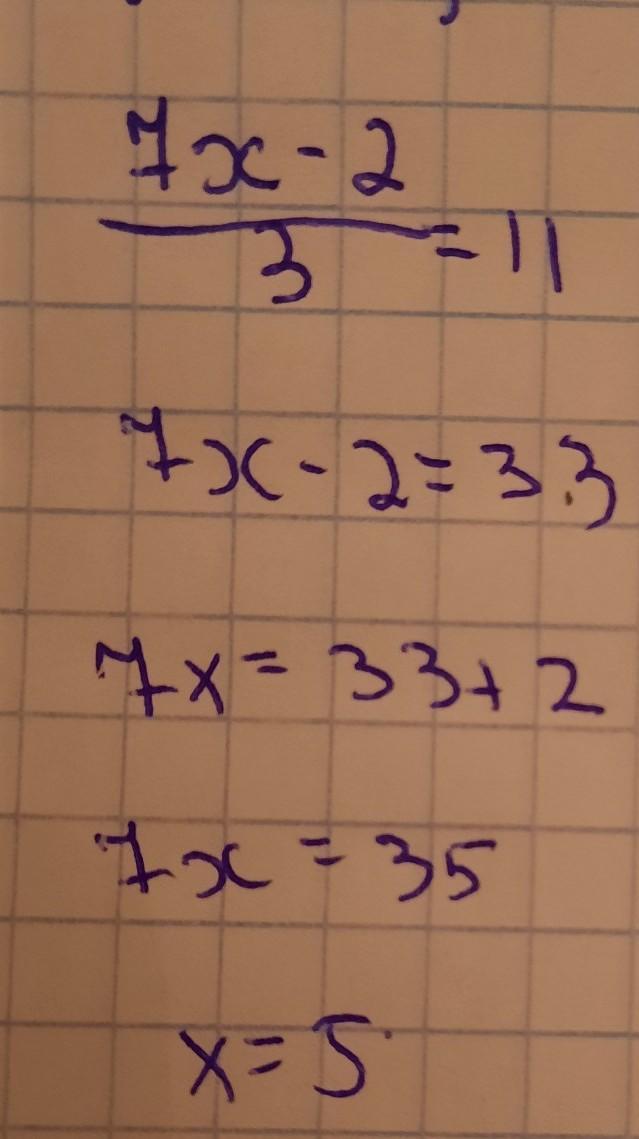 7x - 2
3 = 11
7x - 2 = 33
7x = 33 + 2
7x = 35
x = 5